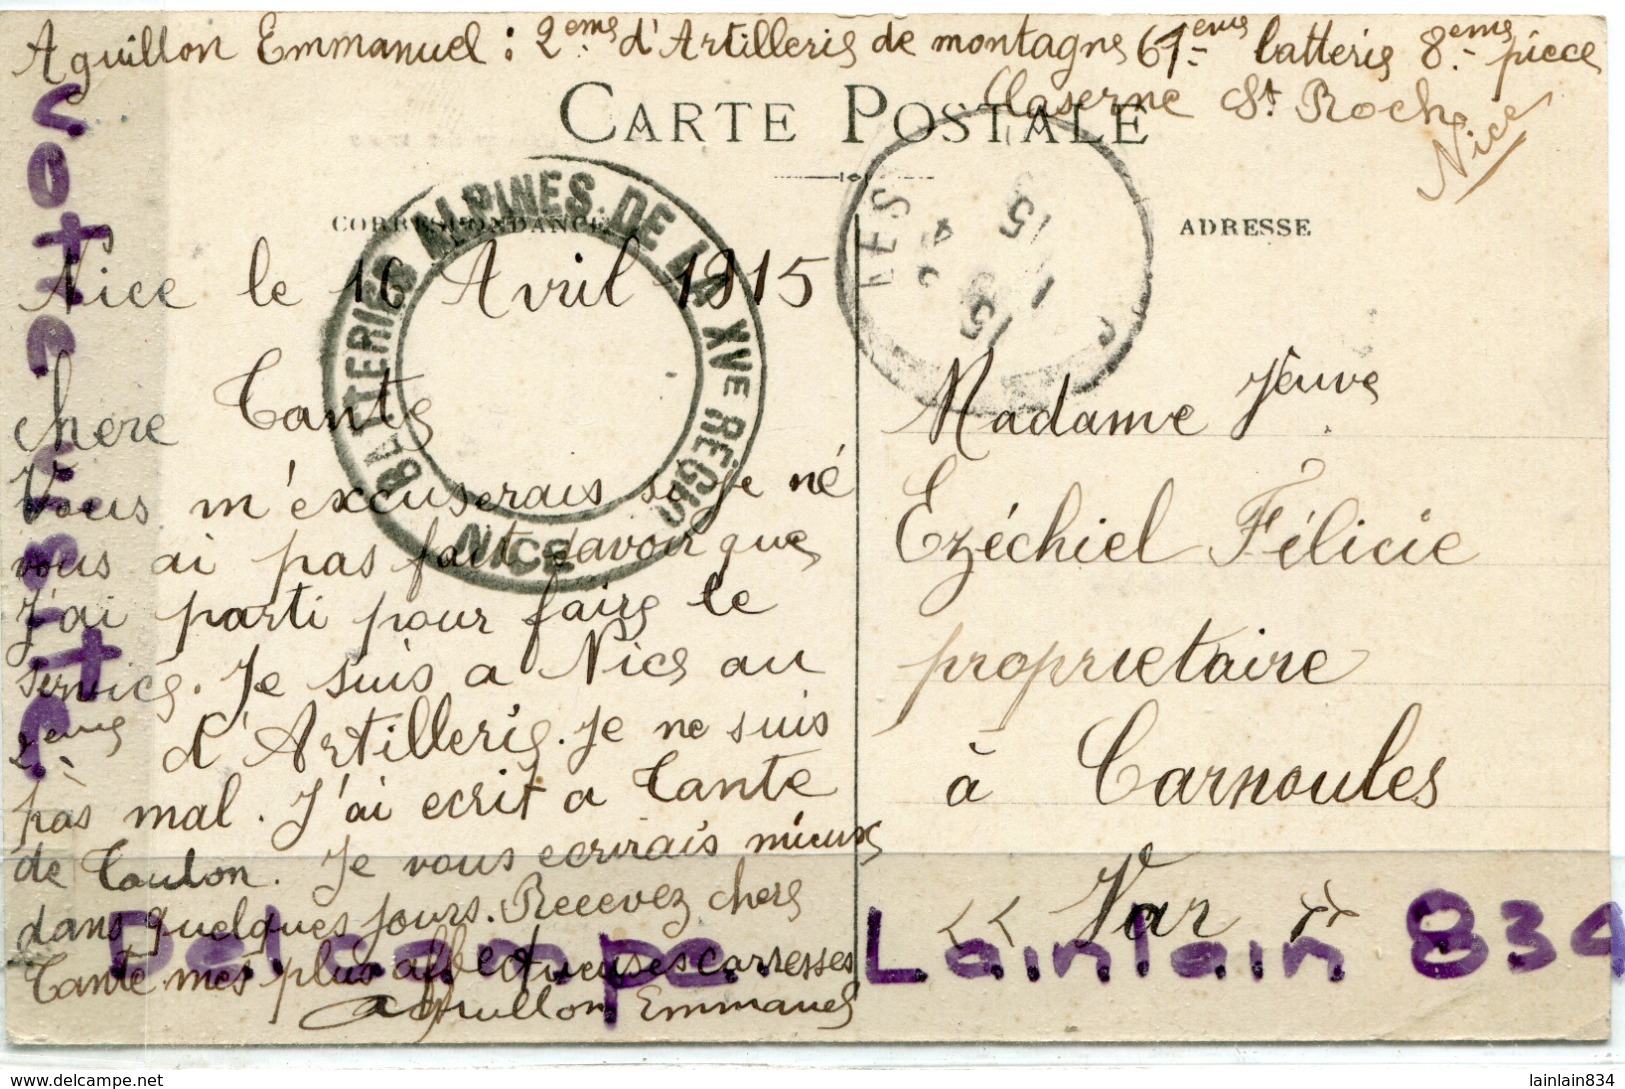 Aguillon Emmanuel : 2ème d'Artillerie de montagne 61ème batterie 8ème pièce
Caserne St Roch
Nice
CARTE POSTALE
CORRESPONDANCE
ADRESSE
BATTERIES ALPINES DE LA XVE RÉGION
NICE
Nice le 16 Avril 1915
chere Tante
Vous m'excuserais si je né
vous ai pas fait savoir que
J'ai parti pour faire le
service. Je suis a Nice au
2ème d'Artillerie. Je ne suis
pas mal. J'ai ecrit a Tante
de Toulon. Je vous ecrirais mieux
dans quelques jours. Recevez chere
Tante mes plus affectueuses carresses
Aguillon Emmanuel
Madame Veuve
Ezéchiel Félicie
proprietaire
à Carnoules
« Var »
Delcampe. Lainlain 834
delcampe.net
lainlain834